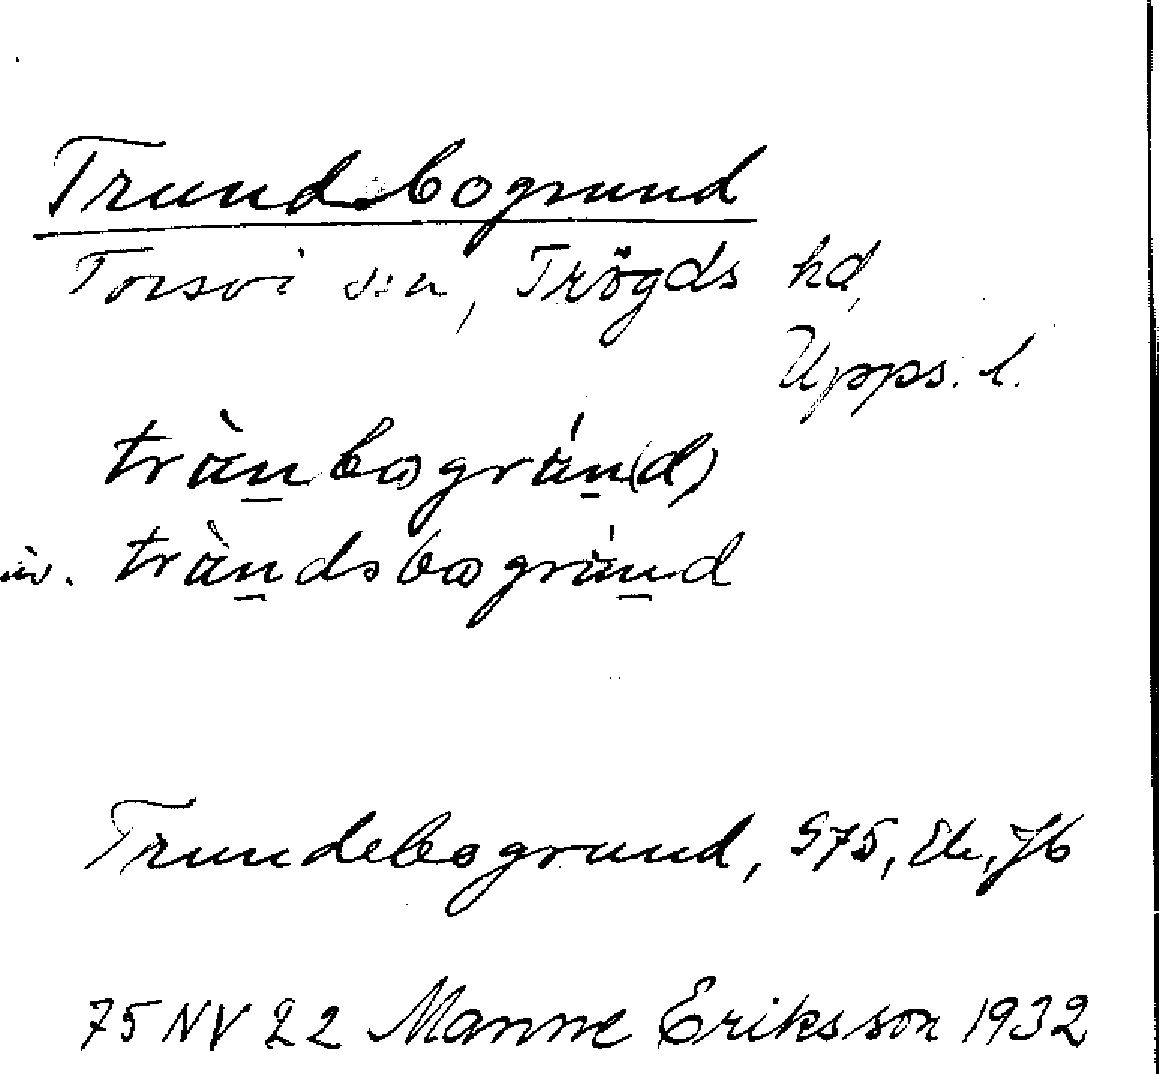 Trundsbogrund
Torsvi sn, Trögds hd,
Upps. l.
trànbográn(d)
äv. tràndsbogránd
Trundebogrund, S75, Ek, Jb
75 NV 22 Manne Eriksson 1932